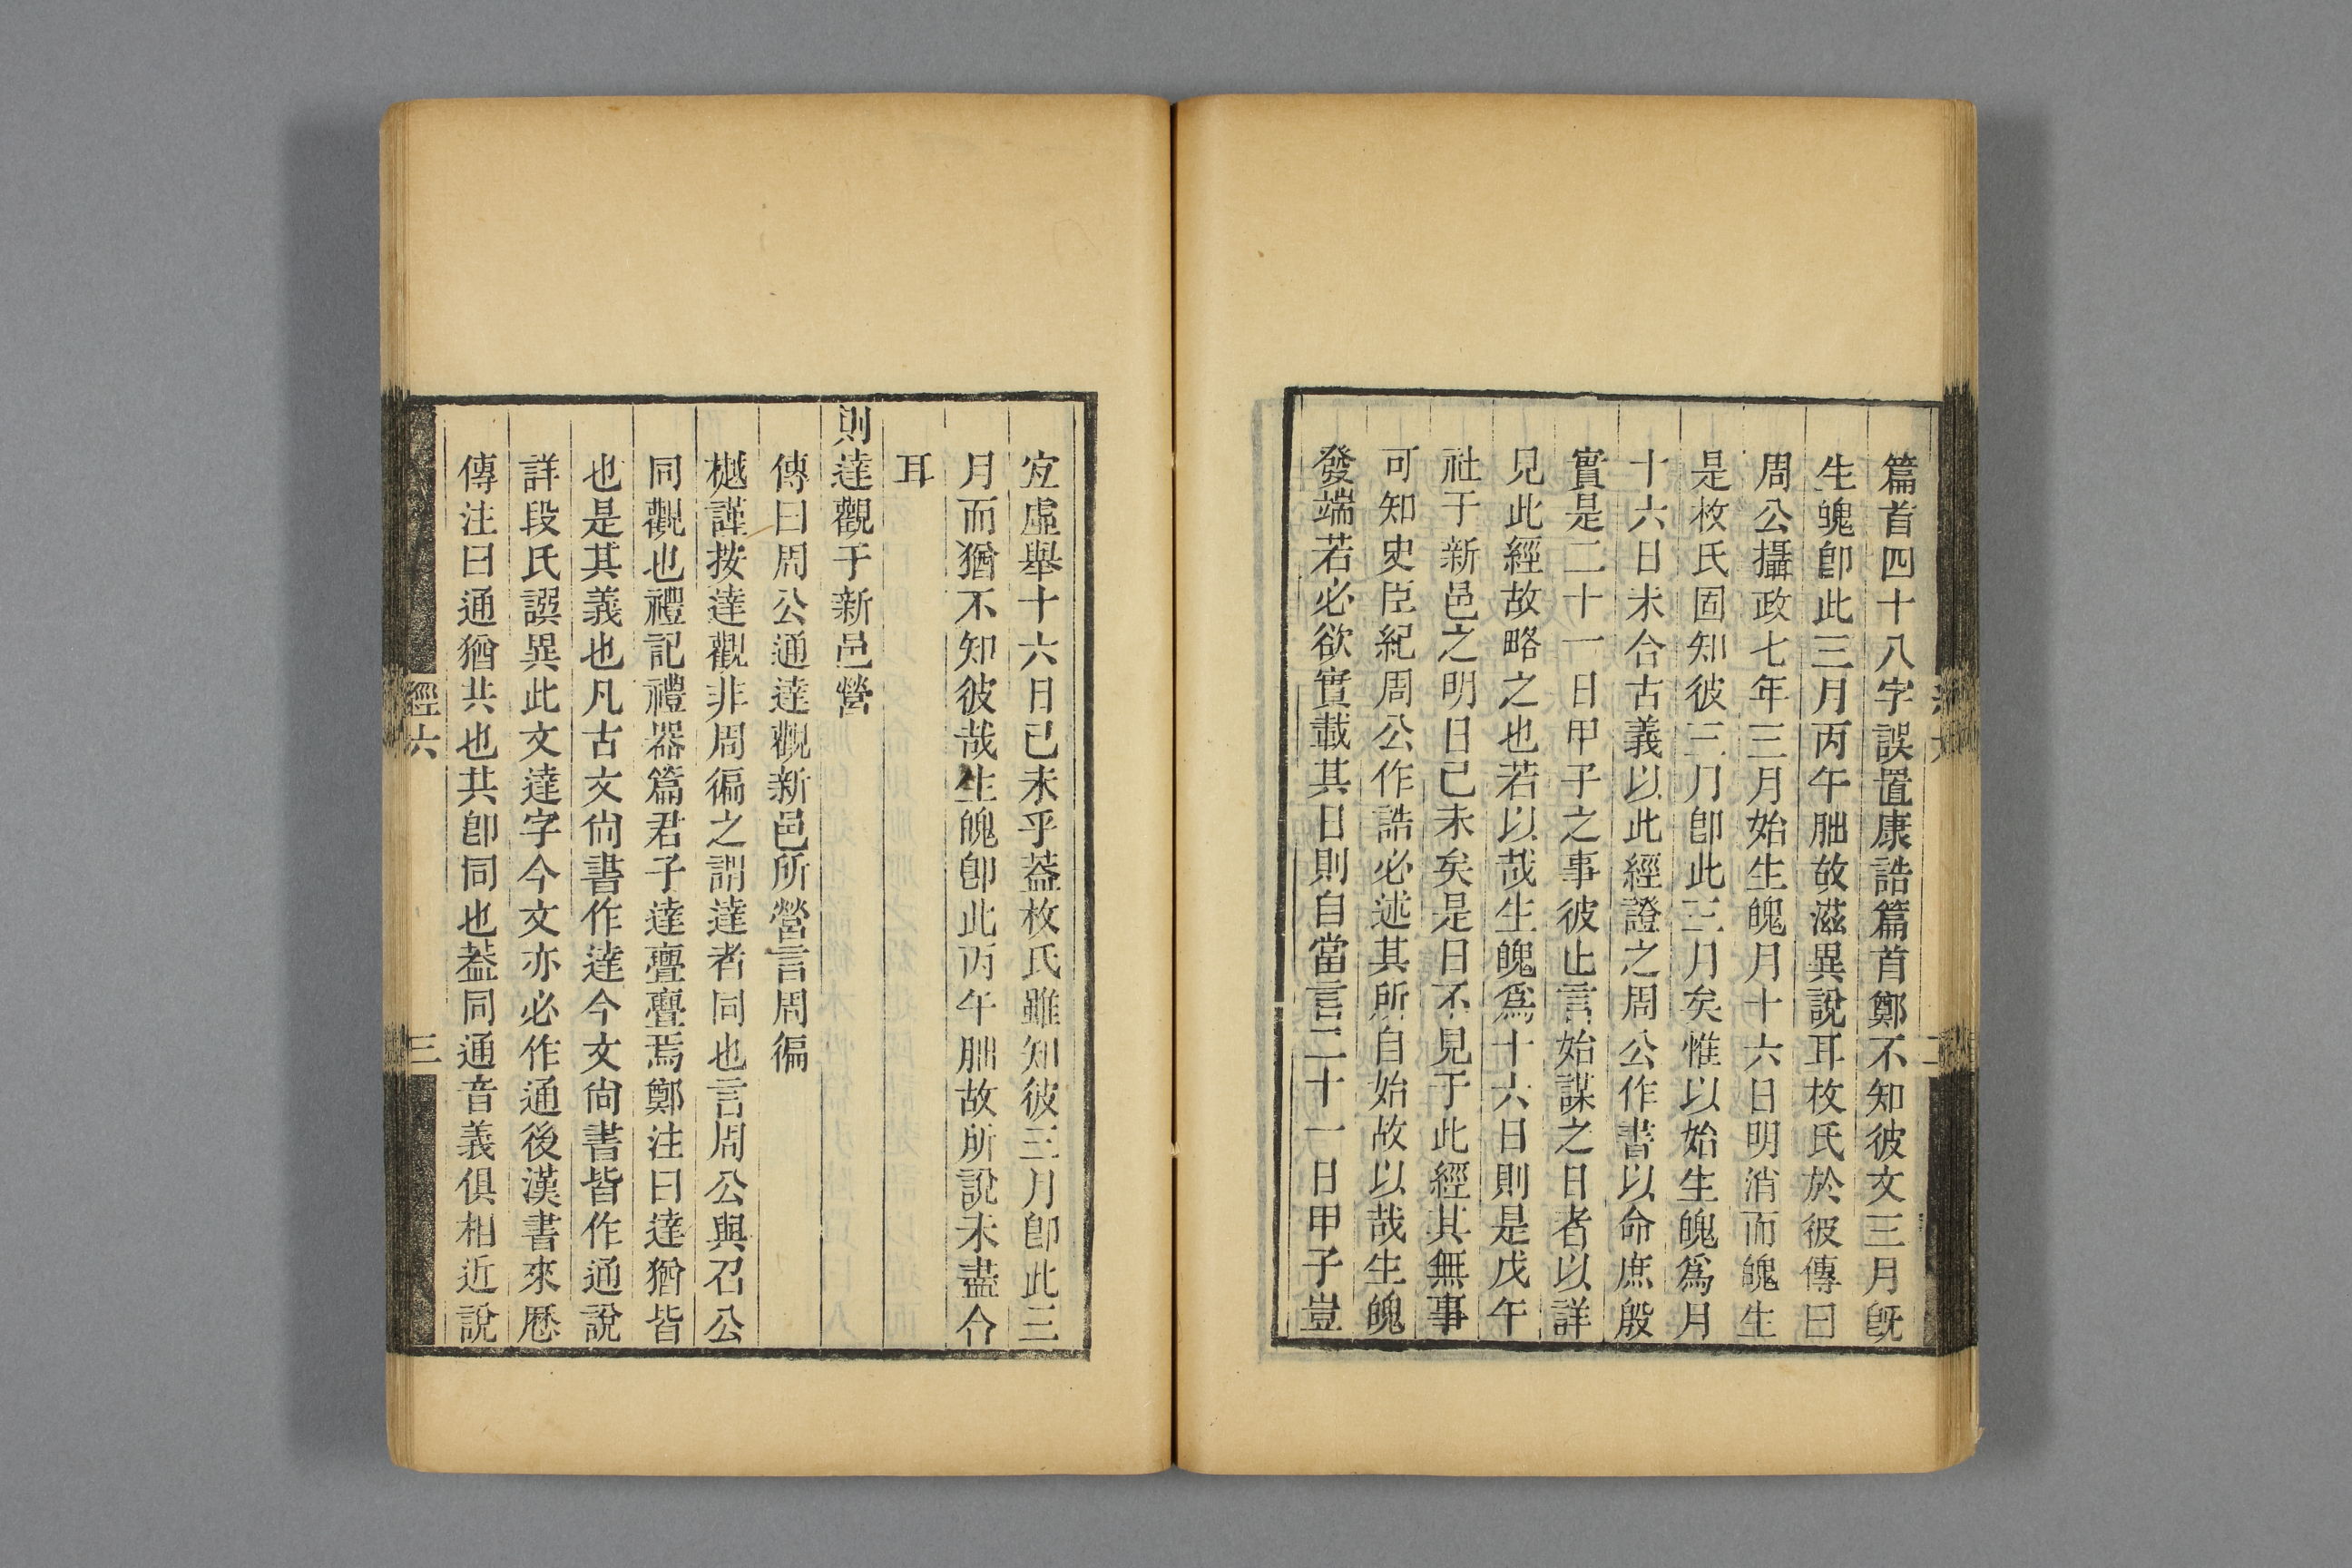 篇首四十八字誤置康誥篇首鄭不知彼文三月旣
生魄卽此三月丙午朏故滋異說耳枚氏於彼傳曰
周公攝政七年三月始生魄月十六日明消而魄生
是枚氏固知彼三月卽此三月矣惟以始生魄爲月
十六日未合古義以此經證之周公作書以命庶殷
實是二十一日甲子之事彼止言始謀之日者以詳
見此經故略之也若以哉生魄爲十六日則是戊午
社于新邑之明日己未矣是日不見于此經其無事
可知史臣紀周公作誥必述其所自始故以哉生魄
發端若必欲實載其日則自當言二十一日甲子豈
宜虛舉十六日己未乎葢枚氏雖知彼三月卽此三
月而猶不知彼哉生魄卽此丙午朏故所說未盡合
耳
則達觀于新邑營
傳曰周公通達觀新邑所營言周徧
樾謹按達觀非周徧之謂達者同也言周公與召公
同觀也禮記禮器篇君子達亹亹焉鄭注曰達猶皆
也是其義也凡古文尙書作達今文尙書皆作通說
詳段氏譔異此文達字今文亦必作通後漢書來歷
傳注曰通猶共也共卽同也葢同通音義俱相近說
經六
三